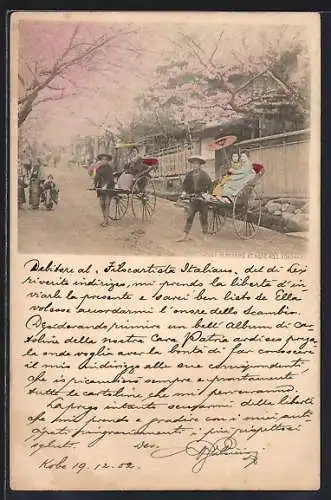 Debitore al "Filocartista Italiano", del di Lei
riverito indirizzo, mi prendo la libertà d'in-
viarle la presente e sarei ben lieto se Ella
volesse accordarmi l'onore dello scambio.
Desiderando riunire un bell'Album di car-
toline della nostra Cara Patria ardisco prega
la onde voglia aver la bontà di far conoscere
il mio indirizzo alle sue corrispondenti
che ricambierò sempre e prontamente
tutte le cartoline che mi perverranno.
La prego intanto scusarmi della libertà
che mi prendo e gradire con i miei anti-
cipati ringraziamenti, i più rispettosi
saluti. Dev.
Kobe 19.12.02.